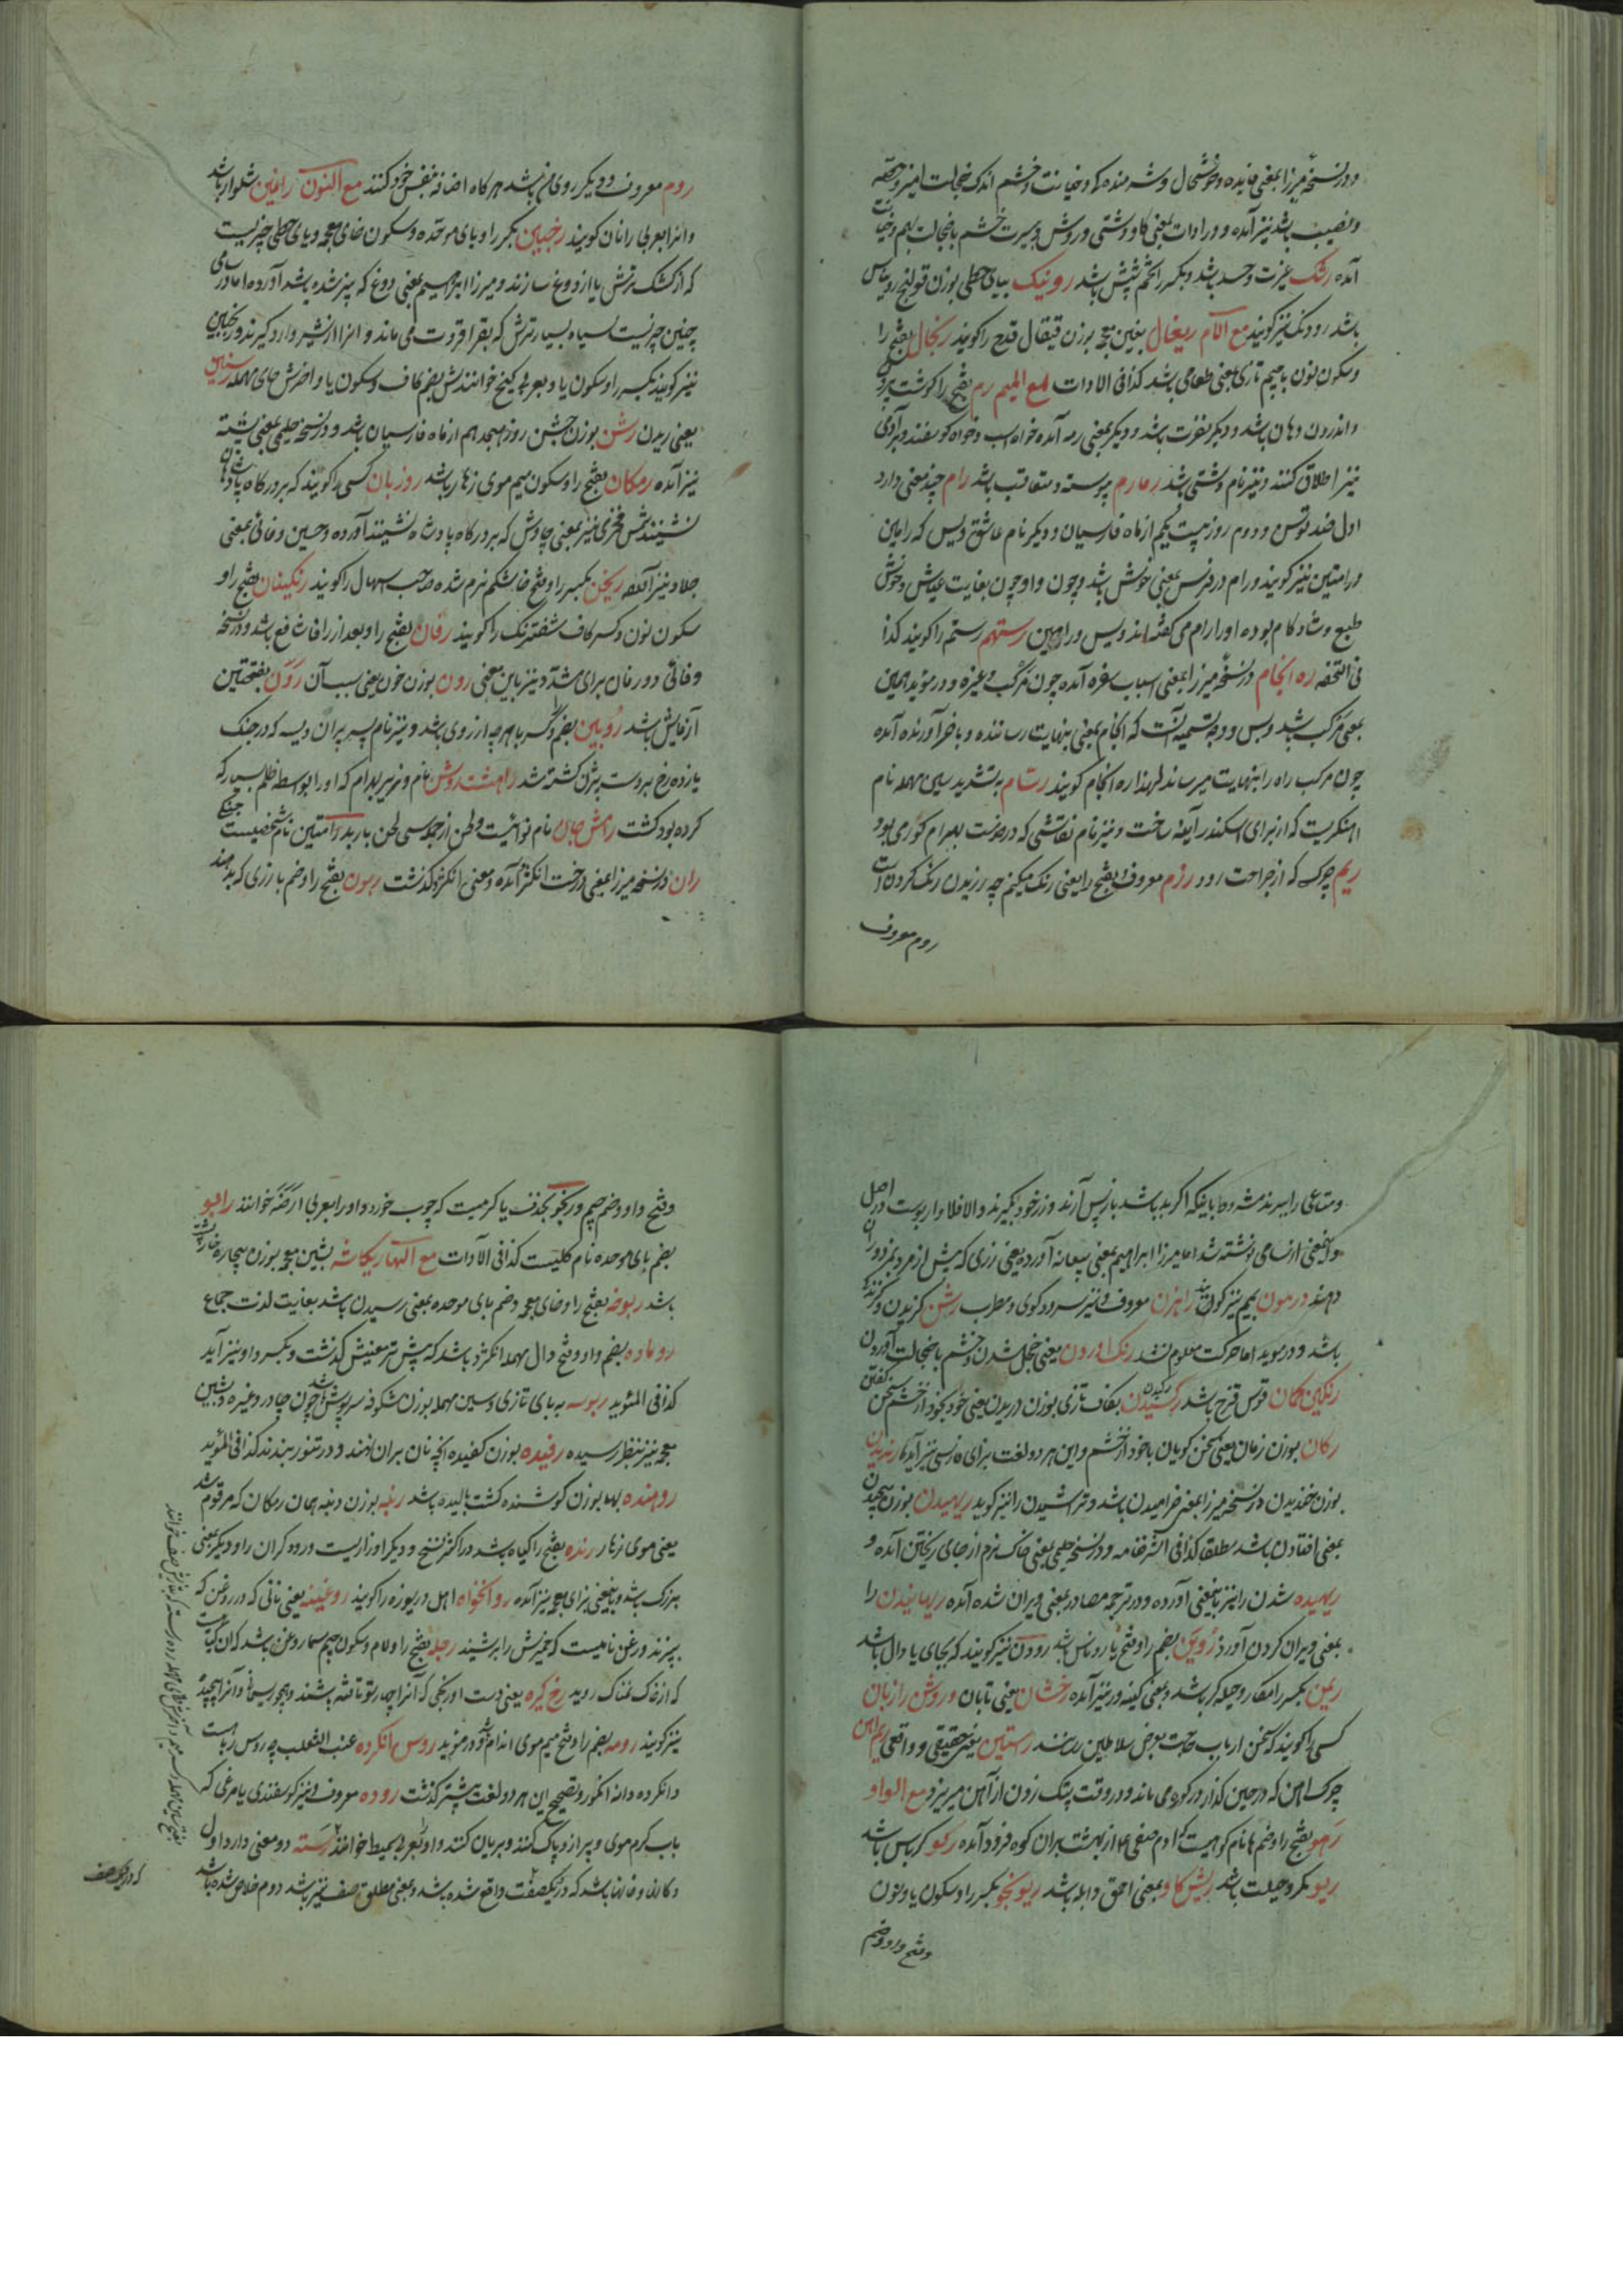 و در نسخهٔ میرزا بمعنی فایده و خوشحال و شرمنده کو و خیانت و خشم اندک خجالت امیز و حصه
و نصیب باشد نیز آمده و در ادات بمعنی کاو دشتی و روش و سیرت خشم با خجالت بهم
آمده رشک غیرت و حسد باشد و بکسر را تخم شپش باشد روینک بیای حطی بوزن قولنج روناس
باشد رودنک نیز کویند مع اللام ریغال بغین معجمه بوزن قیقال قدح را کویند رنجال بفتح را
و سکون نون با جیم تازی بمعنی طعامی باشد کذا فی الادات مع المیم رم بفتح را کوشت بیرون
و اندرون دهان باشد و دیکر نفرت باشد و دیکر بمعنی رمه آمده خواه اسب و خواه کوسفند و بر آدمی
نیز اطلاق کنند و نیز نام دشتی باشد رمارم پیوسته و متعاقب باشد رام چند معنی دارد
اول ضد توسن و دوم روز بیست یکم از ماه فارسیان و دیکر نام عاشق ویس که رامین
و رامتین نیز کویند و رام در فرس بمعنی خوش باشد و چون او چون بغایت عیاش و خوش
طبع و شاد کام بوده او را رام می کفته اند ویس و رامین رستهم رستم را کویند کذا
فی التحفه ره انجام در نسخهٔ میرزا بمعنی اسباب سفره آمده چون مرکب و غیره و در موید همین
بمعنی مرکب باشد و بس و وجه تسمیه آنست که انجام بمعنی بنهایت رساننده و باخر آورنده آمده
چون مرکب راه را بنهایت میرساند لهذا ره انجام کویند رسام بتشدید سین مهمله نام
اهنکریست که از برای اسکندر آینه ساخت و نیز نام نقاشی که در خدمت بهرام کور می بود
ریم چرک که از جراحت رود رزم معروف و بفتح را یعنی رنک میکنم چه رزیدن رنک کردن است
روم معروف
روم معروف و دیکر روی من باشد هر کاه اضافه بنفس خود کنند مع النون رانین شلوار باشد
و انرا بعربی رانان کویند رخبین بکسر را و بای موحده و سکون خای معجمه و یای حطی چیزیست
که از کشک ترش یا از دوغ سازند و میرزا ابراهیم بمعنی دوغ که پنیر شده باشد آورده اما در سامی
چنین چیزیست سیاه بسیار ترش که بقراقروت می ماند و انرا از شیر وارد کیرند و ریخبین
نیز کویند بکسر را و سکون یا و بعربی کبخ خوانندش بضم کاف و سکون یا و اخرش حای مهمله
یعنی ریدن رشن بوزن جشن روز هیجدهم از ماه فارسیان باشد و در نسخه حلیمی بمعنی پشته
نیز آمده رمکان بفتح را و سکون میم موی زهار باشد روزبان کسی را کویند که بر درکاه پادشاهان
نشینند شمس فخری نیز بمعنی چاوش که بر درکاه پادشاه نشینند آورده و حسین وفائی بمعنی
جلاد نیز آمده ریخن بکسر را و فتح خا شکم نرم شده صاحب اسهال را کویند رنکینان بفتح را و
سکون نون و کسر کاف شفترنک را کویند رفان بفتح را و بعد از را فا شافع باشد و در نسخه
وفائی و در فان برای مشدد نیز باین معنی رون بوزن خون یعنی سبب آن رون بفتحتین
آزمایش باشد رویین بضم و کسر یا هر چه از روی باشد و نیز نام پسر پیران ویسه که در جنک
یازده رخ بر دست بیژن کشته شد راست روشن نام وزیر بهرام که او را بواسطه ظلم بسیار که
کرده بود کشت رامش جان نام نوائیست و لحن از جمله سی لحن باربد رامتین نام شخصیست چنکی
ران در نسخه میرزا بمعنی درخت انکژد آمده و معنی انکژد کذشت ربون بفتح را و ضم با زری که به
و متاعی را ببرند مشروط باینکه اکر بد باشد باز پس آرند و زر خود بکیرند و الا فلا و اربون است در اصل
و اینمعنی از سامی نوشته شد اما میرزا ابراهیم بمعنی بیعانه آورده یعنی زری که پیش از مزد بمزدوران
دهند و رمون بمیم نیز کویند راهزن معروف و نیز سرود کوی و مطرب رشن کزیدن و کزنده
باشد و در موید اما حرکت معلوم نشد رنک اوردن یعنی خجل شدن و خشم با خجالت آوردن
رنکین کمان قوس قزح باشد رکیدن بکاف تازی بوزن دریدن یعنی خود بخود از خشم سخن کفتن
رکان بوزن زمان یعنی سخن کویان با خود از خشم و این هر دو لغت بزای فارسی نیز آید رندیدن
بوزن خندیدن در نسخه میرزا بمعنی خرامیدن باشد و تراشیدن را نیز کوید ریهیدن بوزن پیچیدن
بمعنی افتادن باشد مطلقا کذا فی الشرفنامه و در نسخه حلیمی بمعنی خاک نرم از جای ریختن آمده و
ریهیده شدن را نیز باینمعنی آورده و در ترجمه مصادر بمعنی ویران شده آمده ریهانیدن را
بمعنی ویران کردن آورد روین بضم را و فتح یا روناس باشد رودن نیز کویند که بجای یا دال باشد
ریمن بکسر را مکار و حیله کر باشد و بمعنی کینه ور نیز آمده رخشان یعنی تابان و روشن رازبان
کسی را کویند که سخن ارباب حاجت بعرض سلاطین رساند راستین یعنی حقیقی و واقعی ریم اهن
چرک اهن که در حین کداز در کوره می ماند و در وقت پتک زدن از آهن میریزد مع الواو
رهو بفتح را و ضم ها نام کوهیست که آدم صفی ع از بهشت بران کوه فرود آمده رکو کرباس باشد
ریو مکر و حیلت باشد ریش کاو بمعنی احمق و ابله باشد ریونجو بکسر را و سکون یا و نون
و فتح واو و ضم
و فتح واو و ضم جیم و ریخو بحذف یا کرمیست که چوب خورد و او را بعربی ارضه خوانند رابو
بضم بای موحده نام کلیست کذا فی الادات مع الها ریکاشه بشین معجمه بوزن بیچاره خارپشت
باشد ربوخه بفتح را و خای معجمه و ضم بای موحده بمعنی رسیدن باشد بغایت لذت جماع
روماده بضم واو و فتح دال مهمله انکژد باشد که پیش تر معنیش کذشت و بکسر دا و نیز آید
کذا فی المؤید ربوسه به بای تازی و سین مهمله بوزن شکوفه سرپوش باشد چون چادر و غیره و بشین
معجمه نیز بنظر رسیده رفیده بوزن کفیده انچه نان بران نهند و در تنور بندند کذا فی المؤید
روهنده بها بوزن کوشنده کشت بالیده باشد رنبه بوزن دنبه همان رمکان که مرقوم شد
یعنی موی زهار رنده بفتح را کیاه باشد در اکثر نسخ و دیکر اوزاریست درودکران را و دیکر بمعنی
بزرک باشد و باینمعنی بزای معجمه نیز آمده روانخواه اهل دریوزه را کویند روغنینه یعنی نانی که در روغن
پزند و رغن نامیست که خمیرش را برشند رجله بفتح را و لام و سکون جیم سماروغ باشد که ان کیاهیست
که از خاک نمناک روید رخ کیره یعنی دست اورنجی که آنرا چهارتو تافته باشند و چهار ریسمان و آنرا پیچیده
نیز کویند رومه بضم را و فتح میم موی اندام و در موید روس انکرده عنب الثعلب چه روس روباهست
و انکرده دانه انکور و تصحیح این هر دو لغت پیشتر کذشت روده معروف و نیز کوسفندی یا مرغی که
باب کرم موی و پر از و پاک کنند و بریان کنند و او را بعربی سمیط خوانند رسته دو معنی دارد اول
دکانها و خانها باشد که در یک صف واقع شده باشد و بمعنی مطلق صف نیز باشد دوم خلاص شده باشد
که در یک صف